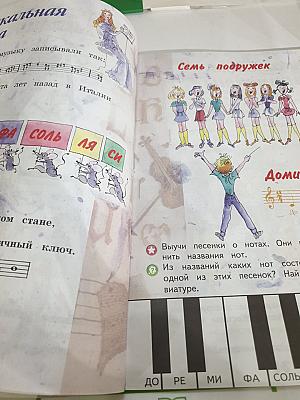 кальная
музыку записывали так:
та лет назад в Италии
ФА СОЛЬ ЛЯ СИ
ом стане,
ичный ключ.
Семь подружек
Доми
Выучи песенки о нотах. Они п
нить названия нот.
Из названий каких нот сост
одной из этих песенок? Най
виатуре.
ДО РЕ МИ ФА СОЛЬ